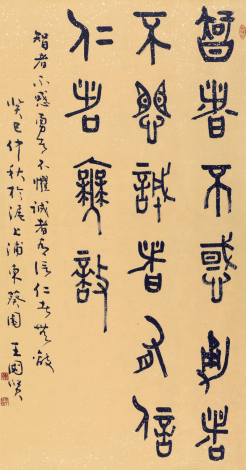 智者不惑勇者
不懼誠者有信
仁者無敵
智者不惑勇者不懼誠者有信仁者無敵
癸巳仲秋於滬上浦東葵園 王國賢